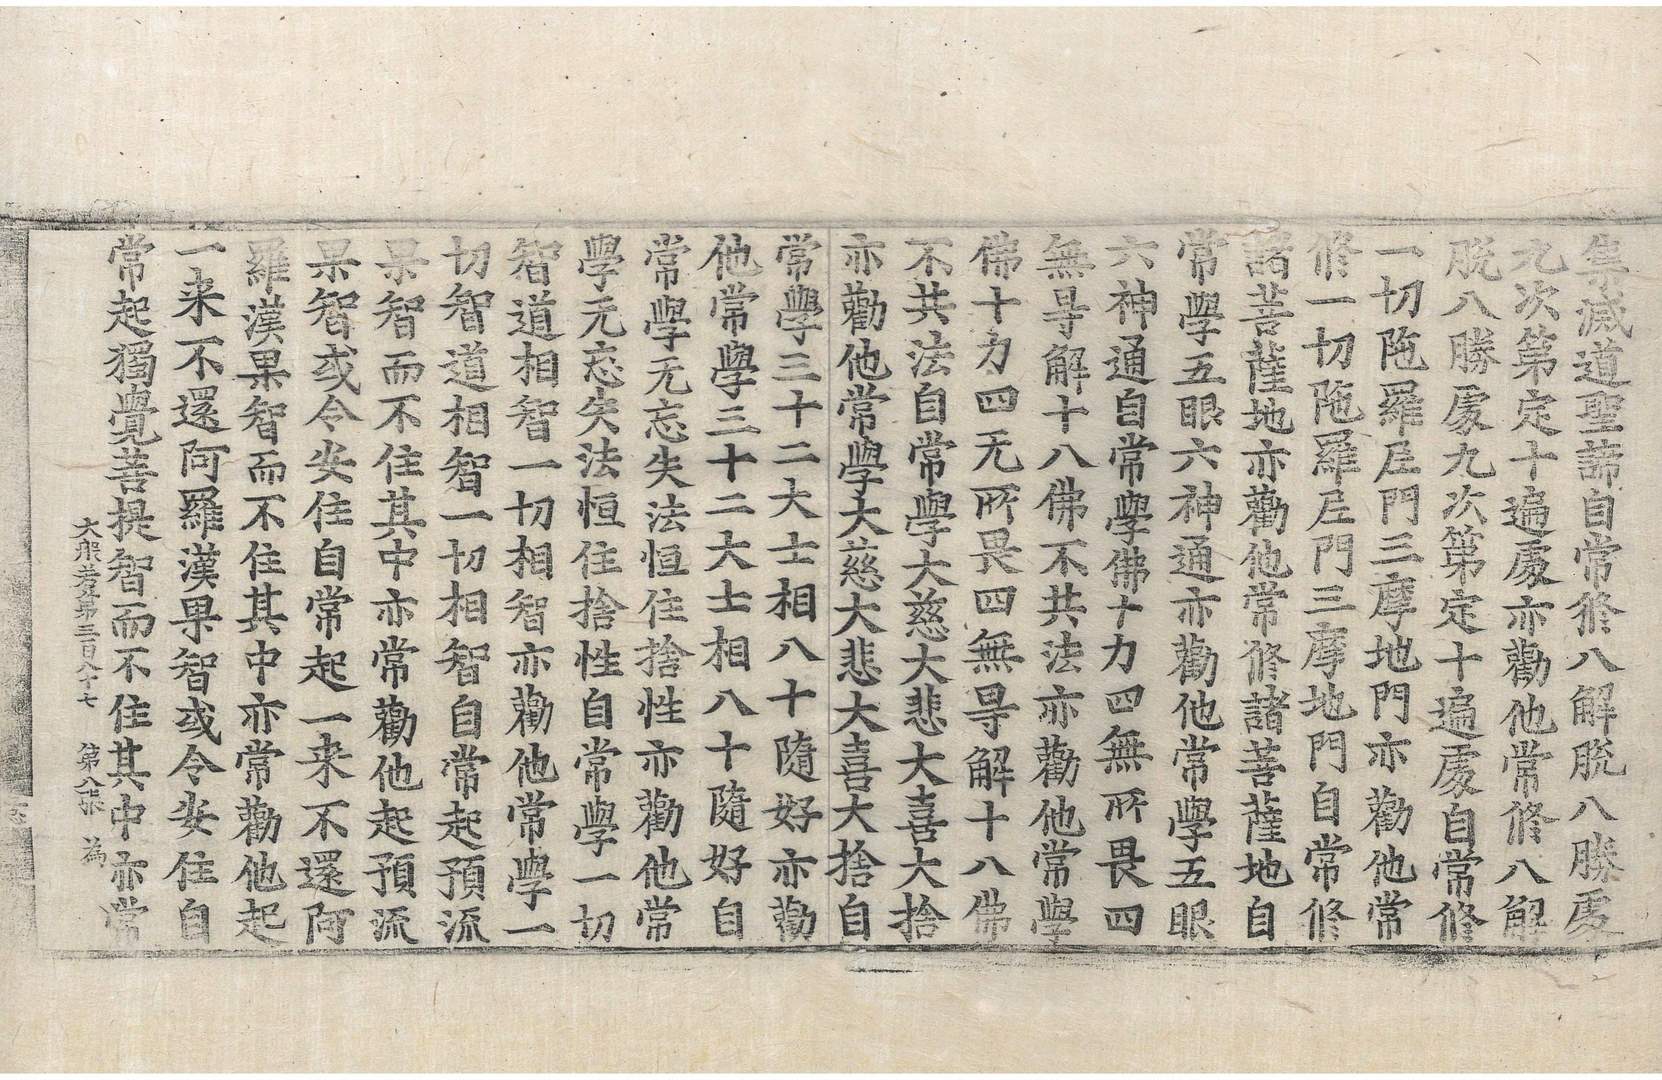 集滅道聖諦自常修八解脫八勝處
九次第定十遍處亦勸他常修八解
脫八勝處九次第定十遍處自常修
一切陁羅尼門三摩地門亦勸他常
修一切陁羅尼門三摩地門自常修
諸菩薩地亦勸他常修諸菩薩地自
常學五眼六神通亦勸他常學五眼
六神通自常學佛十力四無所畏四
無导解十八佛不共法亦勸他常學
佛十力四无所畏四無导解十八佛
不共法自常學大慈大悲大喜大捨
亦勸他常學大慈大悲大喜大捨自
常學三十二大士相八十隨好亦勸
他常學三十二大士相八十隨好自
常學无忘失法恒住捨性亦勸他常
學无忘失法恒住捨性自常學一切
智道相智一切相智亦勸他常學一
切智道相智一切相智自常起預流
果智而不住其中亦常勸他起預流
果智或令安住自常起一来不還阿
羅漢果智而不住其中亦常勸他起
一来不還阿羅漢果智或令安住自
常起獨覺菩提智而不住其中亦常
大般若第三百八十七 第八張 為